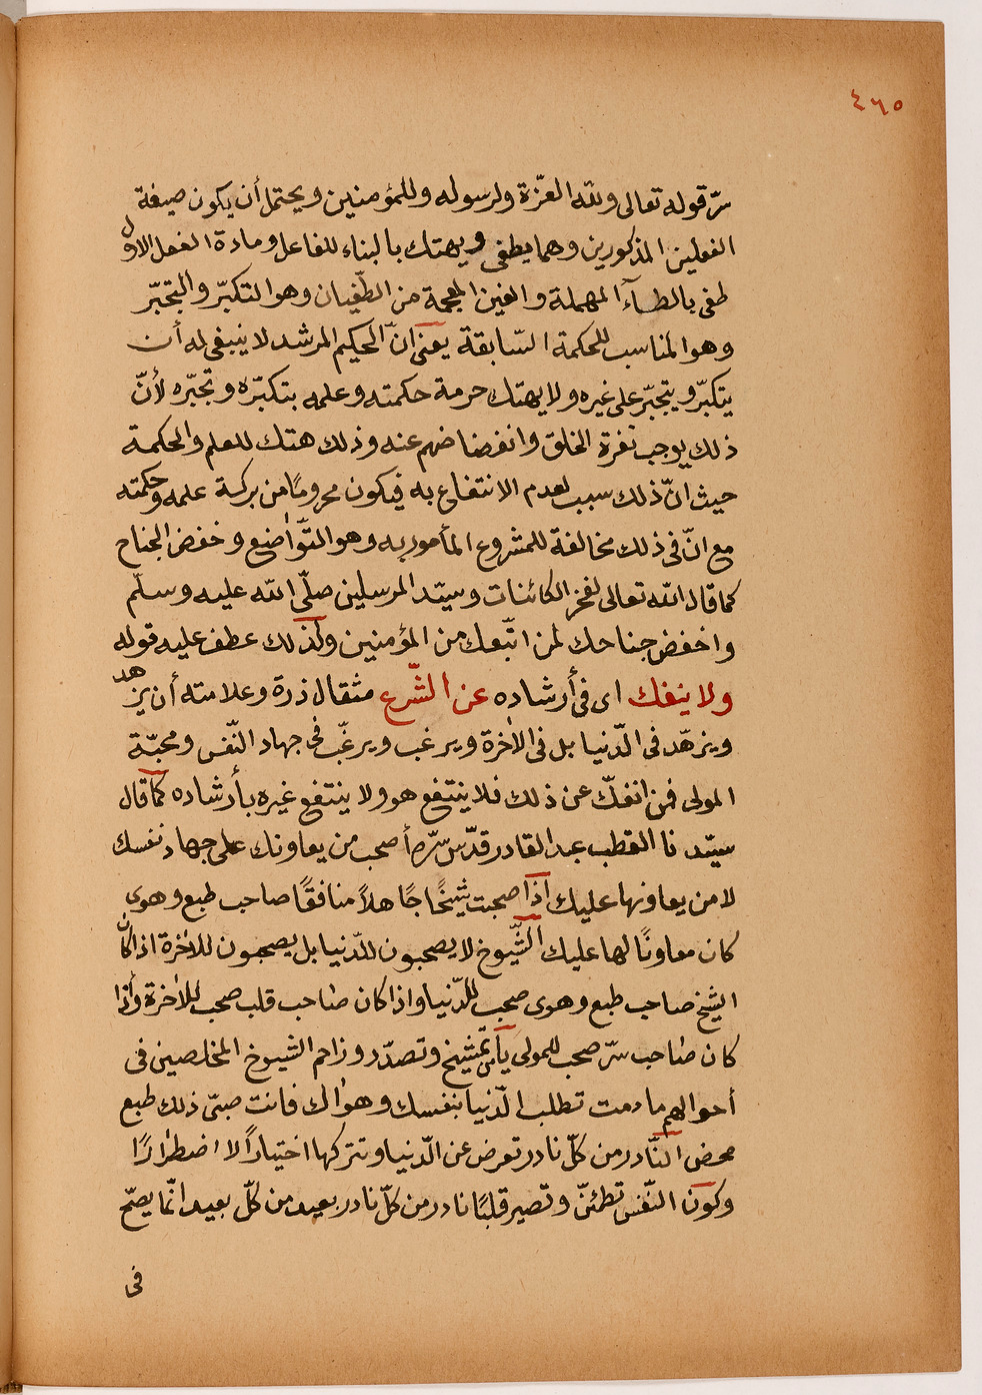 ٤٦٥
سرّ قوله تعالى ولله العزّة ولرسوله وللمؤمنين ويحتمل أن يكون صيغة
الفعلين المذكورين وهما يطغى ويهتك بالبناء للفاعل ومادة الفعل الاول
طغى بالطآء المهملة والغين المعجمة من الطّغيان وهو التكبّر والتجبّر
وهو المناسب للحكمة السّابقة يعنى انّ الحكيم المرشد لا ينبغى له أن
يتكبّر ويتجبّر على غيره ولا يهتك حرمة حكمته وعلمه بتكبّره وتجبّره لأنّ
ذلك يوجب نفرة الخلق وانفضاضهم عنه وذلك هتك للعلم والحكمة
حيث انّ ذلك سبب لعدم الانتفاع به فيكون محرومًا من بركة علمه وحكمته
مع انّ فى ذلك مخالفة للمشروع المأمور به وهو التّواضع وخفض الجناح
كما قال الله تعالى لفخر الكائنات وسيّد المرسلين صلّى الله عليه وسلّم
واخفض جناحك لمن اتّبعك من المؤمنين ولذلك عطف عليه قوله
ولا ينفك اى فى أرشاده عن الشّرع مثقال ذرة وعلامته أن يزهد
ويزهّد فى الدّنيا بل فى الآخرة ويرغب ويرغّب فى جهاد النّفس ومحبّة
المولى فمن انفكّ عن ذلك فلا ينتفع هو ولا ينتفع غيره بأرشاده كما قال
سيّدنا القطب عبد القادر قدّس سرّه أصحب من يعاونك على جهاد نفسك
لا من يعاونها عليك اذا صحبت شيخًا جاهلاً منافقًا صاحب طبع وهوى
كان معاونًا لها عليك الشّيوخ لا يصحبون للدّنيا بل يصحبون للآخرة اذا كان
الشيخ صاحب طبع وهوى صحب للدّنيا واذا كان صاحب قلب صحب للآخرة وأذا
كان صاحب سرّ صحب للمولى يا من تمشيخ وتصدّر وزاحم الشيوخ المخلصين فى
أحوالهم ما دمت تطلب الدّنيا بنفسك وهواك فانت صبىّ ذلك طبع
محض النّادر من كلّ نادر تعرض عن الدّنيا وتتركها اختيارًا لا اضطرارًا
وكون النّفس تطئنّ وتصير قلبًا نادر من كلّ نادر بعيد من كلّ بعيد انّما يصحّ
فى